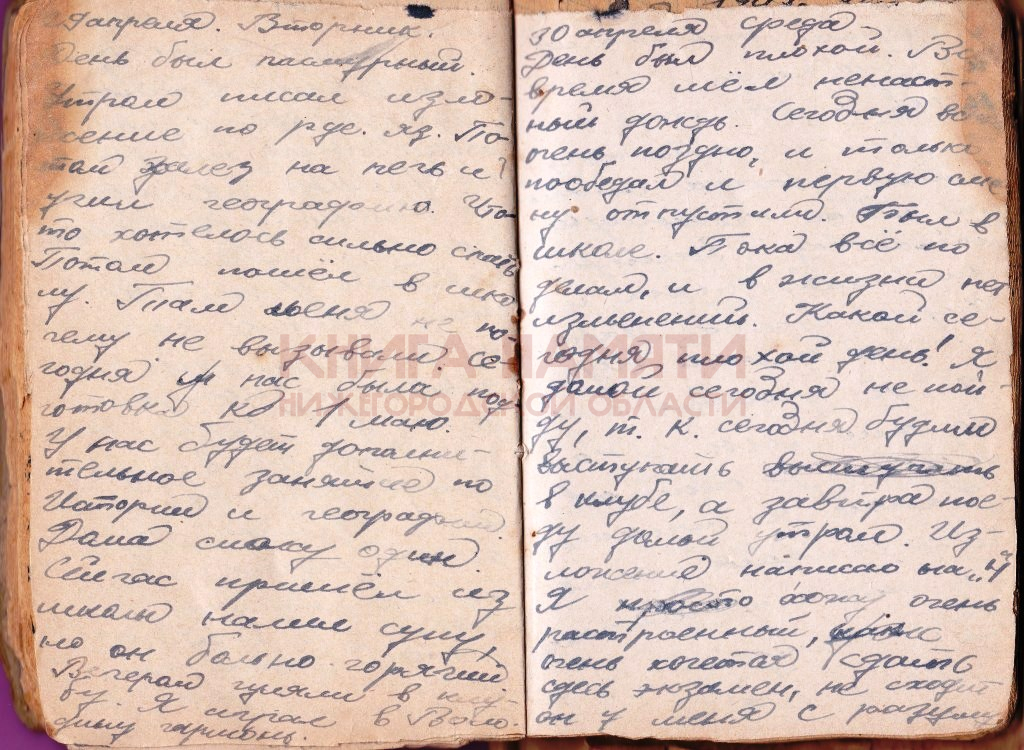 29 апреля. Вторник.
День был пасмурный.
Утром писал изло-
жение по рус. яз. По-
том залез на печь и
учил географию. Что-
то хотелось сильно спать
Потом пошёл в шко
лу. Там меня не по-
чему не вызывали. Се-
годня у нас была под
готовка к 1 маю.
У нас будет дополни-
тельное занятие по
Истории и географии
Дома сижу один.
Сейчас пришёл из
школы налил супу,
но он больно горячий
Вечером гуляли в клу
бу Я играл в
гармонь.
30 апреля среда
День был плохой. Всё
время шёл ненаст
ный дождь. Сегодня вс
очень поздно, и только
пообедал и первую сме
ну отпустили. Был в
школе. Пока всё по
делам, и в жизни нет
изменений. Какой се-
годня плохой день! Я
домой сегодня не пой-
ду, т. к. сегодня будем
выступать выступать
в клубе, а завтра пое-
ду домой утром. Из-
ложение написано на „4
Я просто хожу очень
растроенный,
очень хочется сдать
сдесь экзамен, не сходит
он у меня с разума
КНИГА ПАМЯТИ
НИЖЕГОРОДСКОЙ ОБЛАСТИ